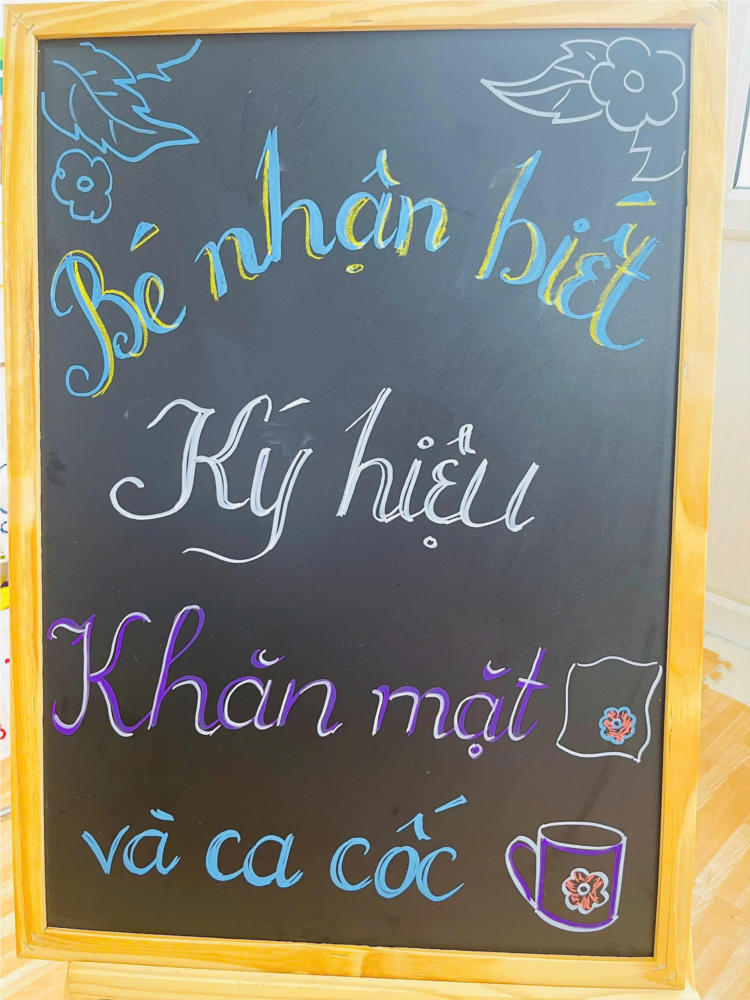 Bé nhận biết
Ký hiệu
Khăn mặt
và ca cốc